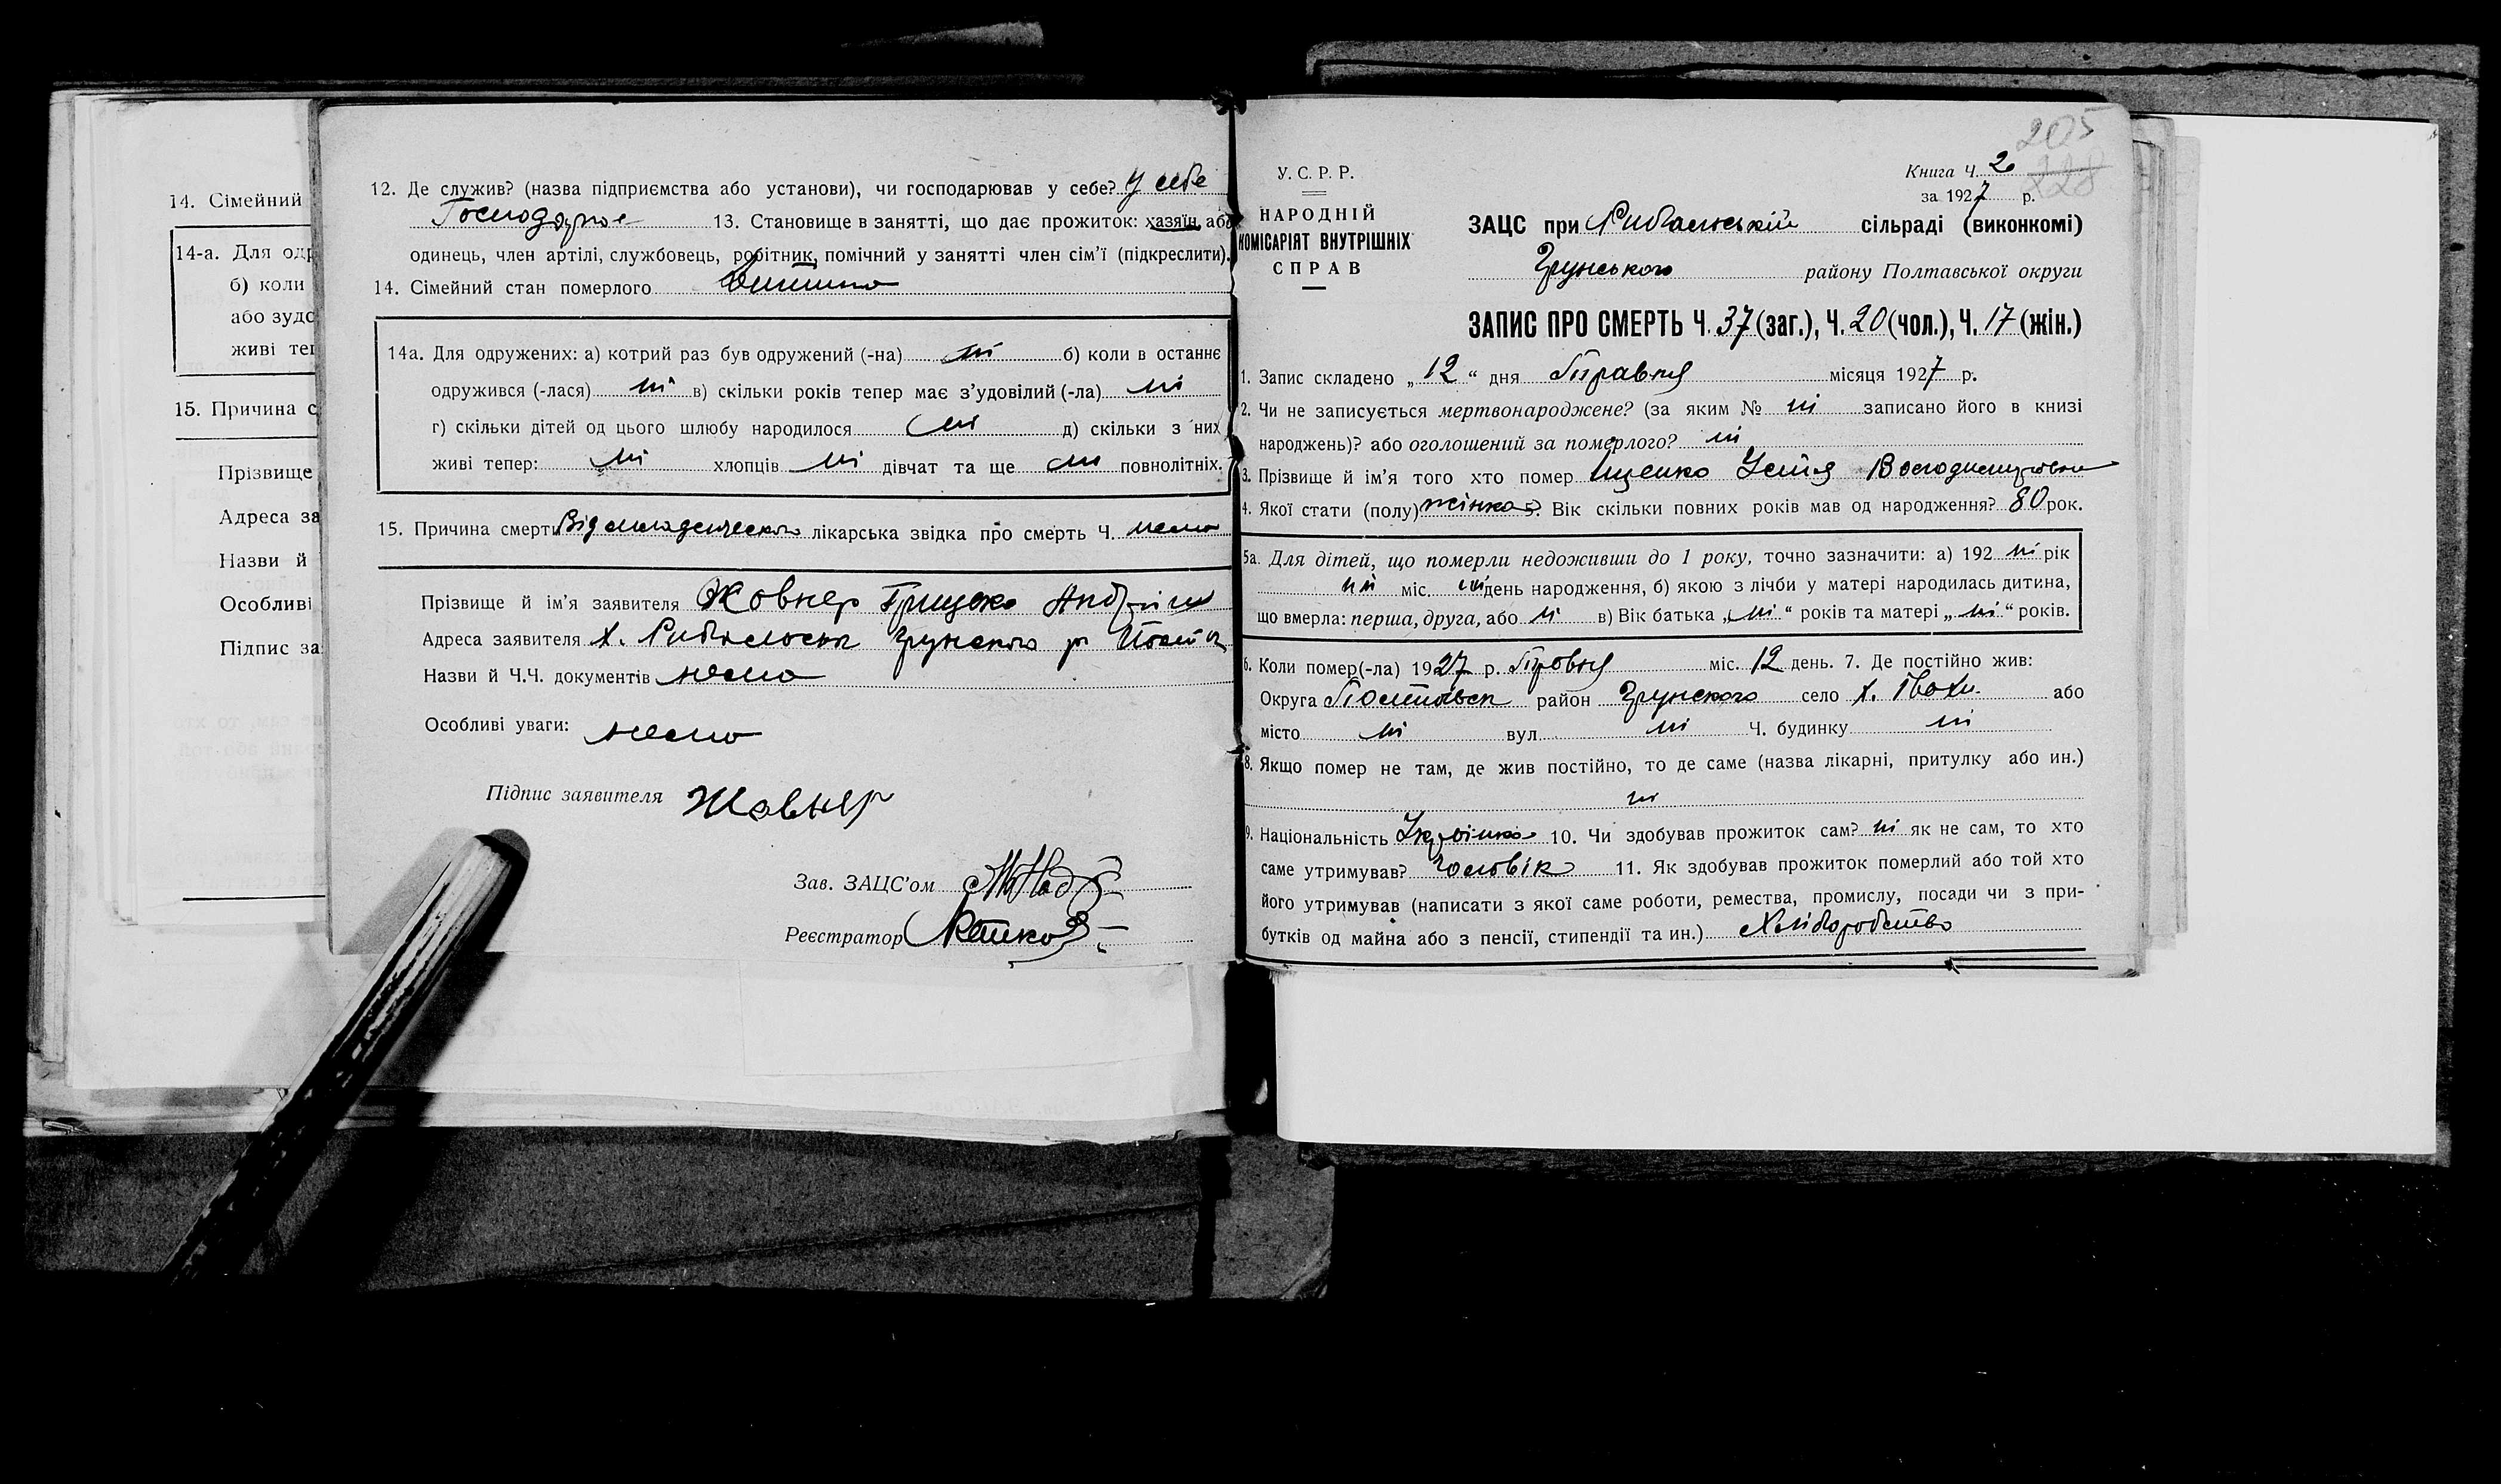 14. Сімейний
14-а. Для одр
б) коли
або зудо
живі теп
15. Причина с
Прізвище
Адреса за
Назви й
Особливі
Підпис за
12. Де служив? (назва підприємства або установи), чи господарював у себе? У себе
Господарює 13. Становище в занятті, що дає прожиток: хазяїн, або
одинець, член артілі, службовець, робітник, помічний у занятті член сім’ї (підкреслити).
14. Сімейний стан померлого Дитина
14а. Для одружених: а) котрий раз був одружений (-на) ні б) коли в останнє
одружився (-лася) ні в) скільки років тепер має з’удовілий (-ла) ні
г) скільки дітей од цього шлюбу народилося ні д) скільки з них
живі тепер: ні хлопців ні дівчат та ще ні повнолітніх.
15. Причина смерти Від младенческого лікарська звідка про смерть Ч. нема
Прізвище й ім’я заявителя Жовнер Грицько Андрій
Адреса заявителя х. Рибальськ Грунського р Полт
Назви й Ч.Ч. документів нема
Особливі уваги: нема
Підпис заявителя Жовнер
Зав. ЗАЦС’ом
Реєстратор
205
228
У. С. Р. Р.
НАРОДНІЙ
КОМІСАРІЯТ ВНУТРІШНІХ
СПРАВ
Книга Ч. 2
за 1927 р.
ЗАЦС при Рибальській сільраді (виконкомі)
Грунського району Полтавської округи
ЗАПИС ПРО СМЕРТЬ Ч. 37 (заг.), Ч. 20 (чол.), Ч. 17 (жін.)
1. Запис складено „12“ дня Травня місяця 1927 р.
2. Чи не записується мертвонароджене? (за яким № ні записано його в книзі
народжень)? або оголошений за померлого? ні
3. Прізвище й ім’я того хто помер Іщенко Устя
4. Якої стати (полу) жінка 5. Вік скільки повних років мав од народження? 80 рок.
5а. Для дітей, що померли недоживши до 1 року, точно зазначити: а) 192 ні рік
ні міс. ні день народження, б) якою з лічби у матері народилась дитина,
що вмерла: перша, друга, або ні в) Вік батька „ні“ років та матері „ні“ років.
6. Коли помер(-ла) 1927 р. Травня міс. 12 день. 7. Де постійно жив:
Округа Полтавськ район Грунского село х. або
місто ні вул ні Ч. будинку ні
8. Якщо помер не там, де жив постійно, то де саме (назва лікарні, притулку або ин.)
ні
9. Національність Українка 10. Чи здобував прожиток сам? ні як не сам, то хто
саме утримував? Чоловік 11. Як здобував прожиток померлий або той хто
його утримував (написати з якої саме роботи, ремества, промислу, посади чи з при-
бутків од майна або з пенсії, стипендії та ин.) Хліборобство